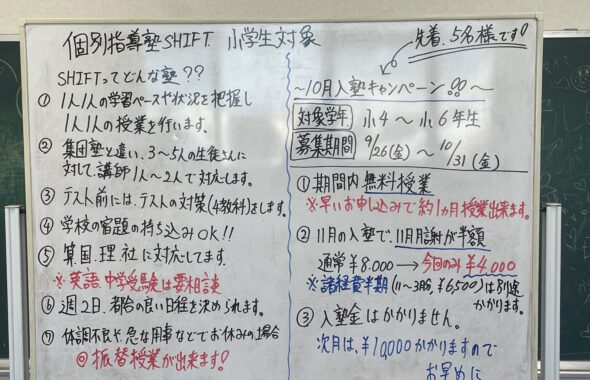 個別指導塾SHIFT 小学生対象
SHIFTってどんな塾??
① 1人1人の学習ペースや状況を把握し
1人1人の授業を行います。
② 集団塾と違い、3〜5人の生徒さんに
対して、講師1人〜2人で対応します。
③ テスト前には、テストの対策(4教科)をします。
④ 学校の宿題の持ち込みOK!!
⑤ 算.国.理.社に対応してます。
※英語.中学受験は要相談
⑥ 週2日、都合の良い日程を決められます。
⑦ 体調不良や急な用事などでお休みの場合
◎振替授業が出来ます!
先着、5名様です!
〜10月入塾キャンペーン!!〜
対象学年 小4〜小6年生
募集期間 9/26(金)〜10/31(金)
① 期間内無料授業
※早いお申し込みで約1カ月授業出来ます。
② 11月の入塾で、11月月謝が半額
通常¥8.000→今回のみ¥4.000
※諸経費半期(11〜3月分、¥6,500)は別途
かかります。
③ 入塾金はかかりません。
次月は、¥10,000かかりますので
お早めに